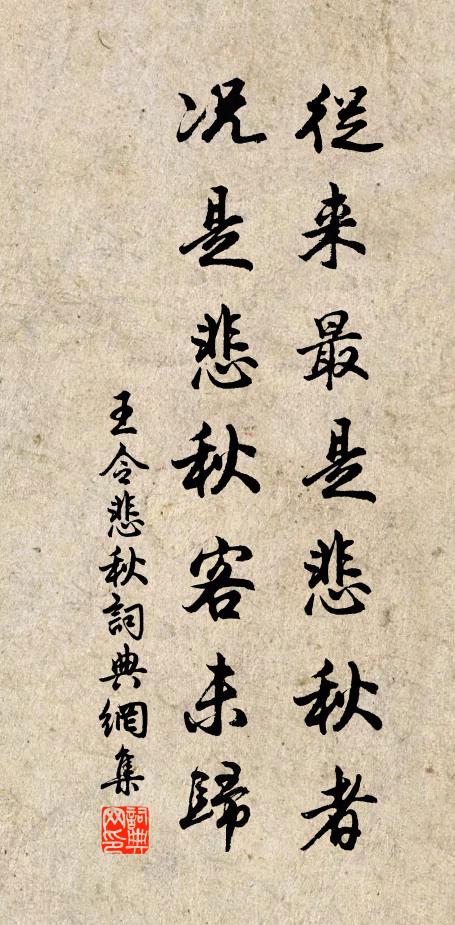 從来最是悲秋者
况是悲秋客未歸
王令悲秋詞典網集
詞典网印